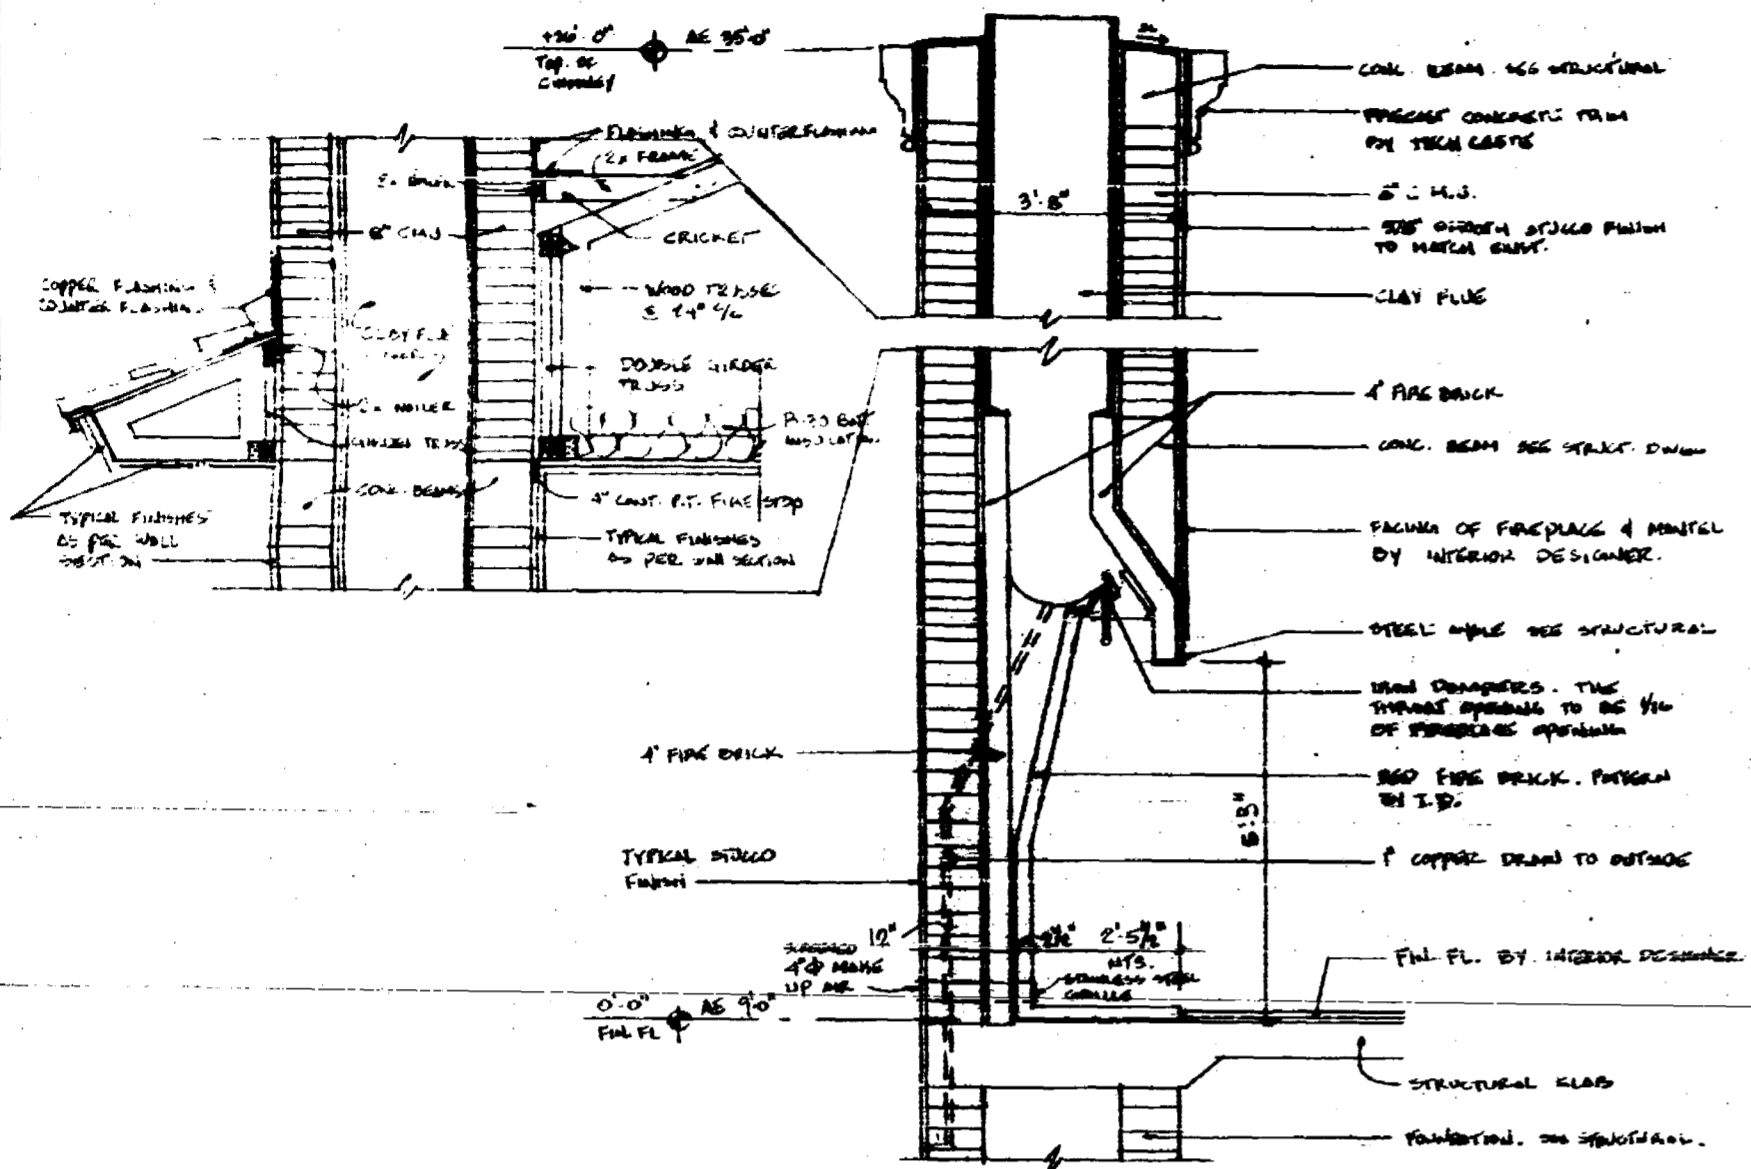 +26'-0" AE 35'-0"
TOP OF
CHIMNEY
FLASHING & COUNTERFLASHING
2x FRAME
8" CMU
CRICKET
COPPER FLASHING &
COUNTER FLASHING
WOOD TRUSSES
@ 24" C/C
CLAY FLUE
DOUBLE GIRDER
TRUSS
2x NAILER
R-30 BATT
INSULATION
TRUSS
CONC. BEAMS
4" CONT. P.T. FIRE STOP
TYPICAL FINISHES
AS PER WALL
SECTION
TYPICAL FINISHES
AS PER WALL SECTION
CONC. BEAM SEE STRUCTURAL
PRECAST CONCRETE TRIM
BY TECH CASTE
3'-8"
C.M.U.
SMOOTH STUCCO FINISH
TO MATCH EXIST.
CLAY FLUE
4" FIRE BRICK
CONC. BEAM SEE STRUCT. DWGS
FACING OF FIREPLACE & MANTEL
BY INTERIOR DESIGNER.
STEEL ANGLE SEE STRUCTURAL
IRON DAMPERS. THE
THROAT OPENING TO BE 1/16
OF FIREPLACE OPENING
4" FIRE BRICK
RED FIRE BRICK. PATTERN
BY I.D.
TYPICAL STUCCO
FINISH
1" COPPER DRAIN TO OUTSIDE
12"
2'-5½"
NTS.
SCREENED
4"Φ MAKE
UP AIR
STAINLESS STEEL
GRILLE
FIN. FL. BY INTERIOR DESIGNER
0'-0" AE 9'-0"
FIN. FL
STRUCTURAL SLAB
FOUNDATION. SEE STRUCTURAL.